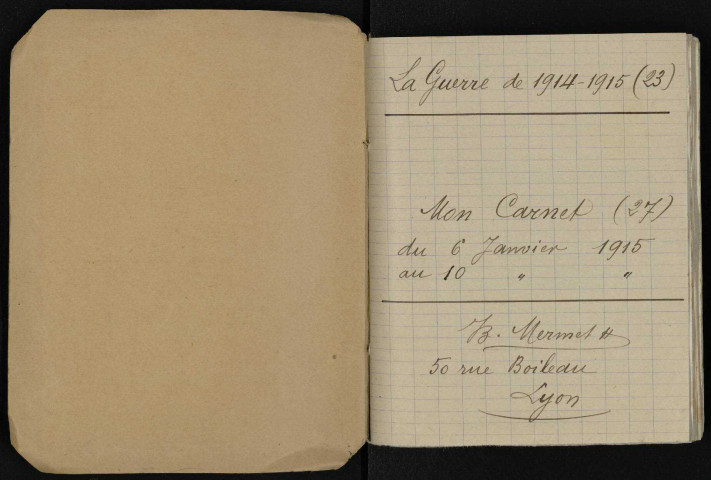 La Guerre de 1914-1915 (23)
Mon Carnet (27)
du 6 Janvier 1915
au 10 " "
B. Mermet
50 rue Boileau
Lyon